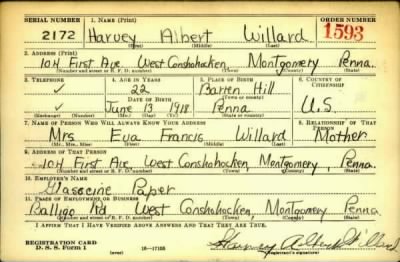 SERIAL NUMBER 1. NAME (Print) ORDER NUMBER
2172 Harvey Albert Willard 1593
(First) (Middle) (Last)
2. ADDRESS (Print)
104 First Ave. West Conshohocken, Montgomery Penna.
(Number and street or R. F. D. number) (Town) (County) (State)
3. TELEPHONE 4. AGE IN YEARS 5. PLACE OF BIRTH 6. COUNTRY OF CITIZENSHIP
22 Barren Hill
(Town or county)
DATE OF BIRTH
June 13 1918 Penna U.S.
(Exchange) (Number) (Mo.) (Day) (Yr.) (State or country)
7. NAME OF PERSON WHO WILL ALWAYS KNOW YOUR ADDRESS 8. RELATIONSHIP OF THAT PERSON
Mrs Eva Francis Willard Mother
(Mr., Mrs., Miss) (First) (Middle) (Last)
9. ADDRESS OF THAT PERSON
104 First Ave, West Conshohocken, Montgomery, Penna.
(Number and street or R. F. D. number) (Town) (County) (State)
10. EMPLOYER'S NAME
Glasscine Paper
11. PLACE OF EMPLOYMENT OR BUSINESS
Balligo Rd West Conshohocken, Montgomery Penna.
(Number and street or R. F. D. number) (Town) (County) (State)
I AFFIRM THAT I HAVE VERIFIED ABOVE ANSWERS AND THAT THEY ARE TRUE.
REGISTRATION CARD
D. S. S. Form 1 (over) 16—17105 Harvey Albert Willard
(Registrant's signature)